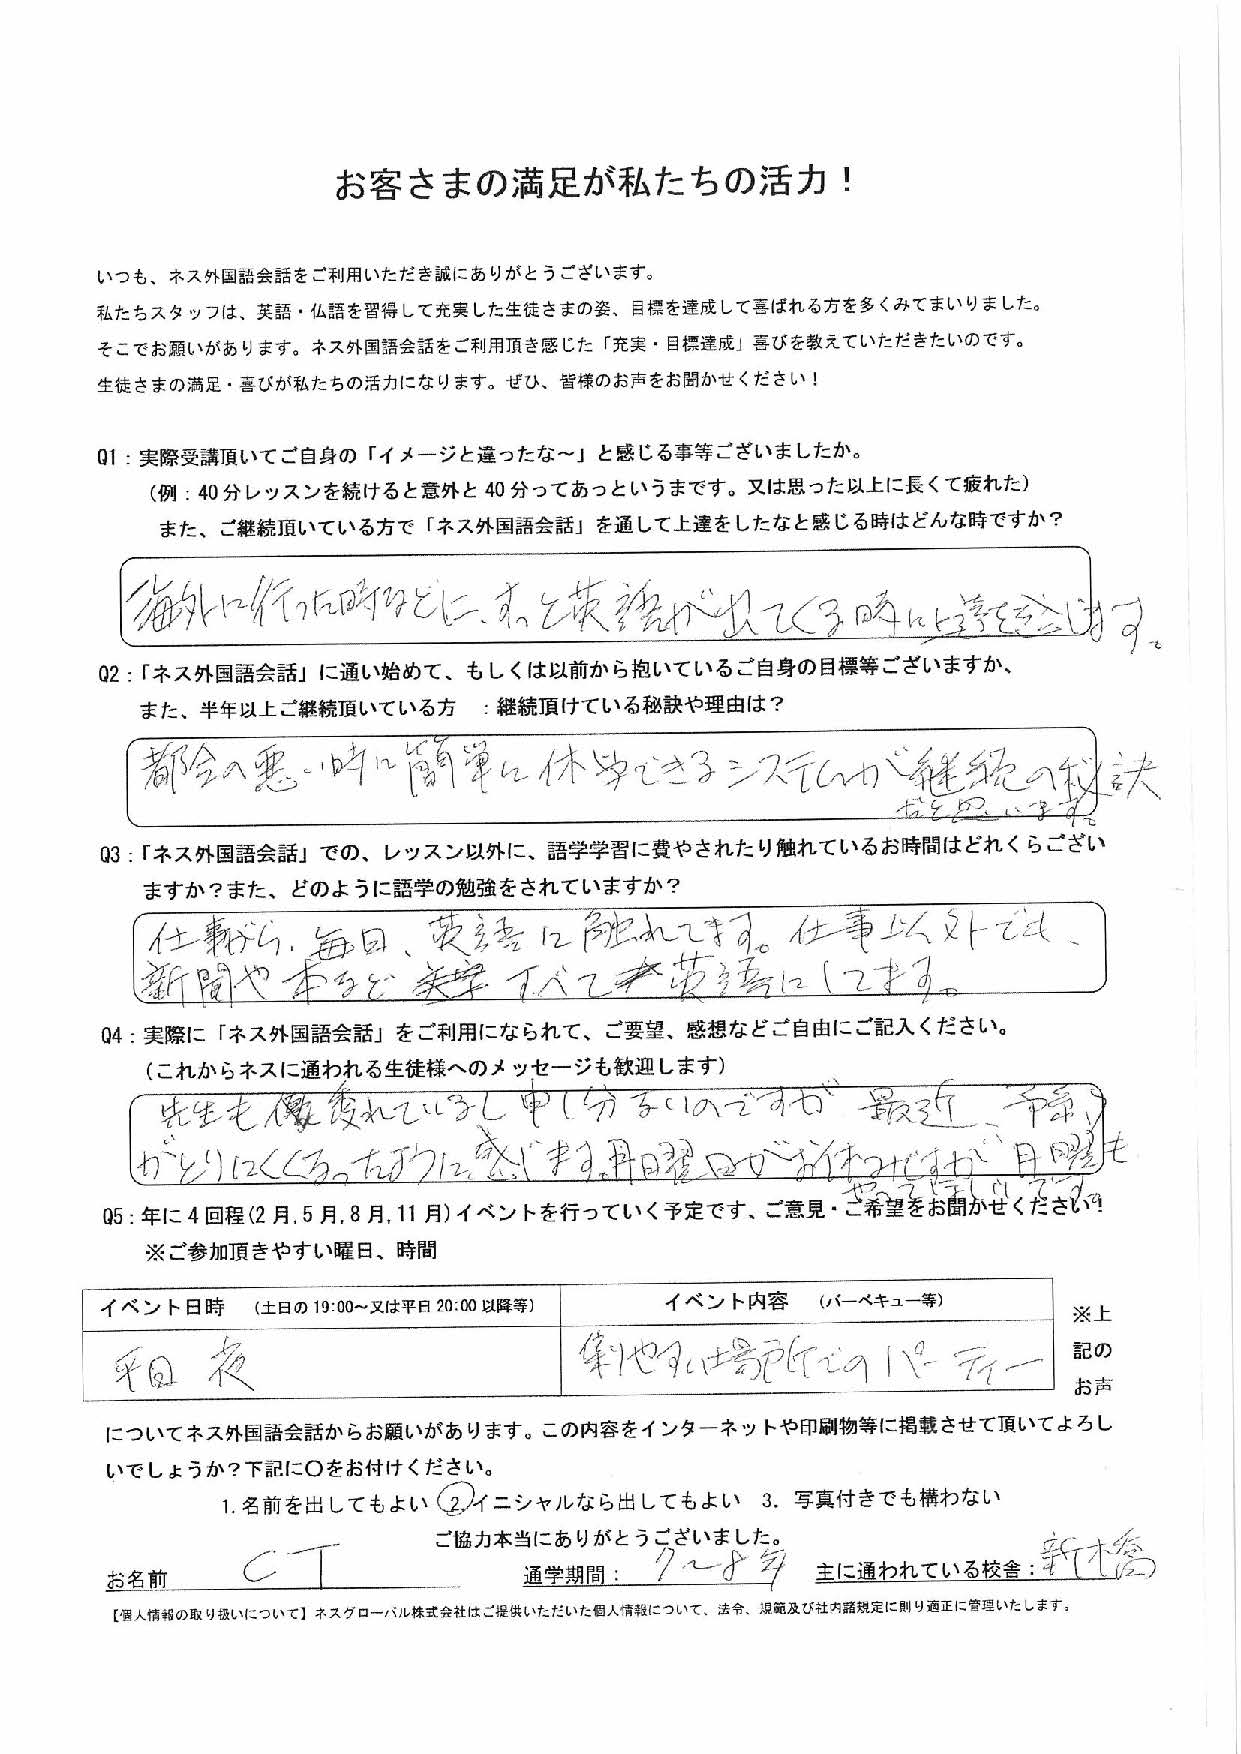 お客さまの満足が私たちの活力！
いつも、ネス外国語会話をご利用いただき誠にありがとうございます。
私たちスタッフは、英語・仏語を習得して充実した生徒さまの姿、目標を達成して喜ばれる方を多くみてまいりました。
そこでお願いがあります。ネス外国語会話をご利用頂き感じた「充実・目標達成」喜びを教えていただきたいのです。
生徒さまの満足・喜びが私たちの活力になります。ぜひ、皆様のお声をお聞かせください！
Q1：実際受講頂いてご自身の「イメージと違ったな～」と感じる事等ございましたか。
（例：40分レッスンを続けると意外と40分ってあっというまです。又は思った以上に長くて疲れた）
また、ご継続頂いている方で「ネス外国語会話」を通して上達をしたなと感じる時はどんな時ですか？
海外に行った時などに、すっと英語が出てくる時に上達を感じます。
Q2：「ネス外国語会話」に通い始めて、もしくは以前から抱いているご自身の目標等ございますか、
また、半年以上ご継続頂いている方　：継続頂けている秘訣や理由は？
都合の悪い時に簡単に休学できるシステムが継続の秘訣
だと思います。
Q3：「ネス外国語会話」での、レッスン以外に、語学学習に費やされたり触れているお時間はどれくらござい
ますか？また、どのように語学の勉強をされていますか？
仕事がら、毎日、英語に触れてます。仕事以外でも、
新聞や本など すべて英語にしてます。
Q4：実際に「ネス外国語会話」をご利用になられて、ご要望、感想などご自由にご記入ください。
（これからネスに通われる生徒様へのメッセージも歓迎します）
先生も優れているし申し分ないのですが 最近、予約
がとりにくくなったように感じます。日曜日がお休みですが 日曜も
やってほしいです。
Q5：年に4回程(2月,5月,8月,11月)イベントを行っていく予定です、ご意見・ご希望をお聞かせください！
※ご参加頂きやすい曜日、時間
イベント日時　（土日の19:00～又は平日20:00以降等）　イベント内容　（バーベキュー等）
平日 夜　集りやすい場所でのパーティー
※上
記の
お声
についてネス外国語会話からお願いがあります。この内容をインターネットや印刷物等に掲載させて頂いてよろし
いでしょうか？下記に○をお付けください。
1.名前を出してもよい 2.イニシャルなら出してもよい 3. 写真付きでも構わない
ご協力本当にありがとうございました。
お名前 CT 通学期間： 7～8年 主に通われている校舎：新橋
【個人情報の取り扱いについて】ネスグローバル株式会社はご提供いただいた個人情報について、法令、規範及び社内諸規定に則り適正に管理いたします。